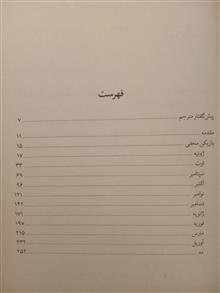 فهرست
پیش‌گفتار مترجم ۷
مقدمه ۱۱
بازیکن مخفی ۱۵
ژوئیه ۱۷
اوت ۳۳
سپتامبر ۶۹
اکتبر ۹۶
نوامبر ۱۲۱
دسامبر ۱۴۲
ژانویه ۱۷۱
فوریه ۱۹۷
مارس ۲۱۵
آوریل ۲۳۲
مه ۲۵۲